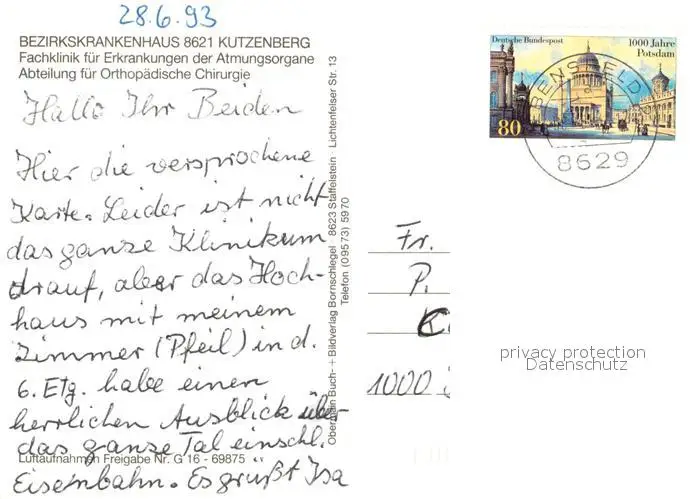 28.6.93
BEZIRKSKRANKENHAUS 8621 KUTZENBERG
Fachklinik für Erkrankungen der Atmungsorgane
Abteilung für Orthopädische Chirurgie
Hallo Ihr Beiden
Hier die versprochene
Karte. Leider ist nicht
das ganze Klinikum
drauf, aber das Hoch-
haus mit meinem
Zimmer (Pfeil) in d.
6. Etg. habe einen
herrlichen Ausblick über
das ganze Tal einschl.
Eisenbahn. Es grüßt Isa
Luftaufnahmen Freigabe Nr. G 16 - 69875
Obermain Buch- + Bildverlag Bornschlegel 8623 Staffelstein Lichtenfelser Str. 13
Telefon (09573) 5970
Deutsche Bundespost
1000 Jahre
Potsdam
80
8629
Fr.
P.
1000
privacy protection
Datenschutz